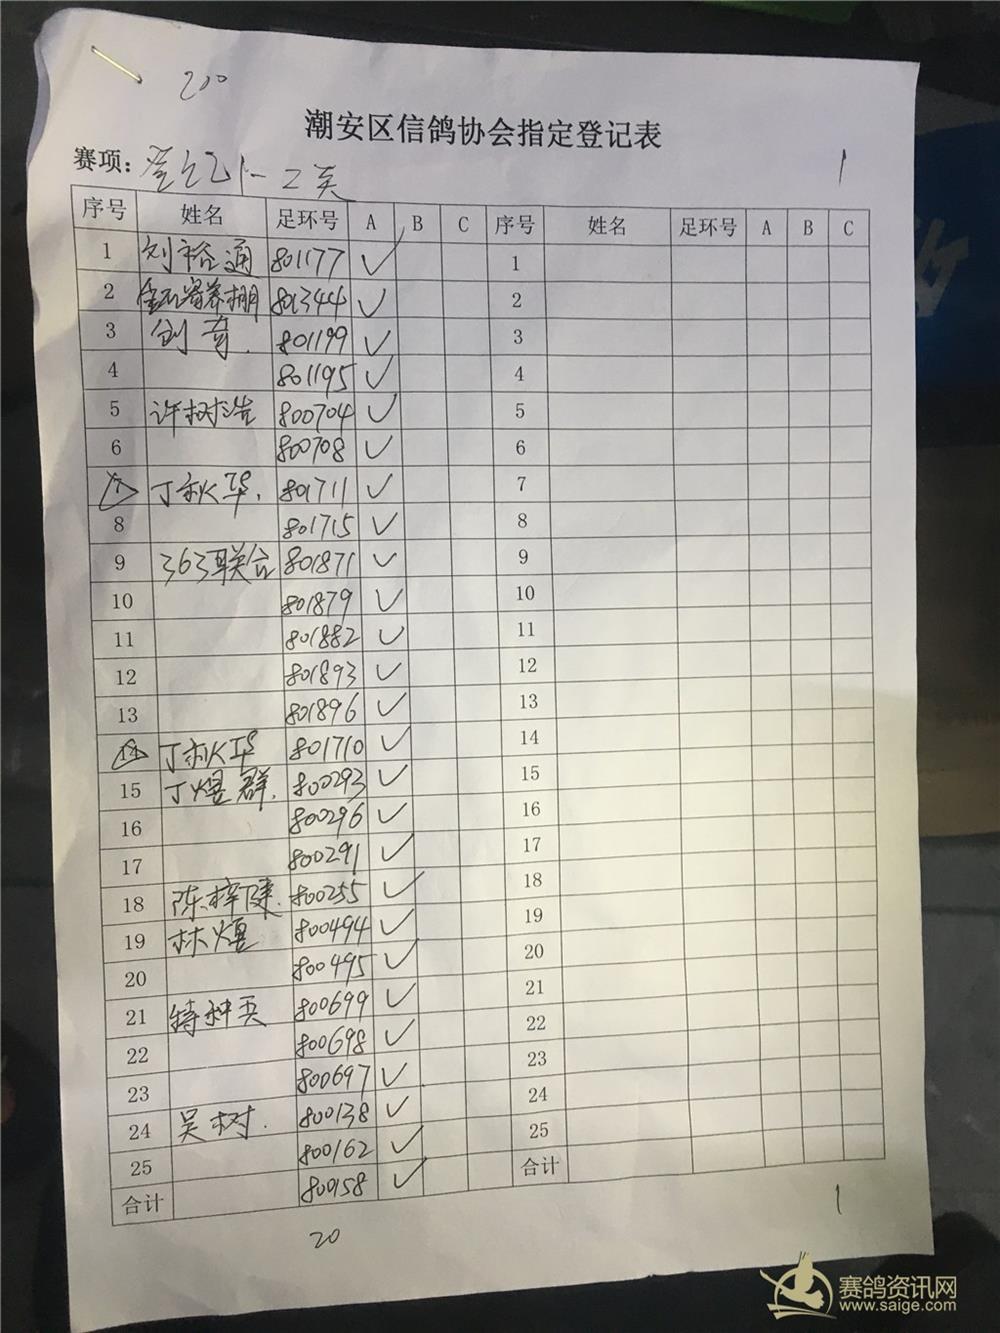 200
潮安区信鸽协会指定登记表
赛项: 1-2关
序号 姓名 足环号 A B C 序号 姓名 足环号 A B C
1 刘裕通 801177 ✓ 1
2 801344 ✓ 2
3 创奇. 801199 ✓ 3
4 801195 ✓ 4
5 许树浩 800704 ✓ 5
6 800708 ✓ 6
7 丁秋华. 801711 ✓ 7
8 801715 ✓ 8
9 363联合 801871 ✓ 9
10 801879 ✓ 10
11 801882 ✓ 11
12 801893 ✓ 12
13 801896 ✓ 13
14 丁秋华 801710 ✓ 14
15 丁煜群. 800293 ✓ 15
16 800296 ✓ 16
17 800291 ✓ 17
18 陈梓健. 800255 ✓ 18
19 林煜 800494 ✓ 19
20 800495 ✓ 20
21 特种兵 800699 ✓ 21
22 800698 ✓ 22
23 800697 ✓ 23
24 吴树. 800138 ✓ 24
25 800162 ✓ 25
合计 800158 ✓ 合计
20
赛鸽资讯网
www.saige.com